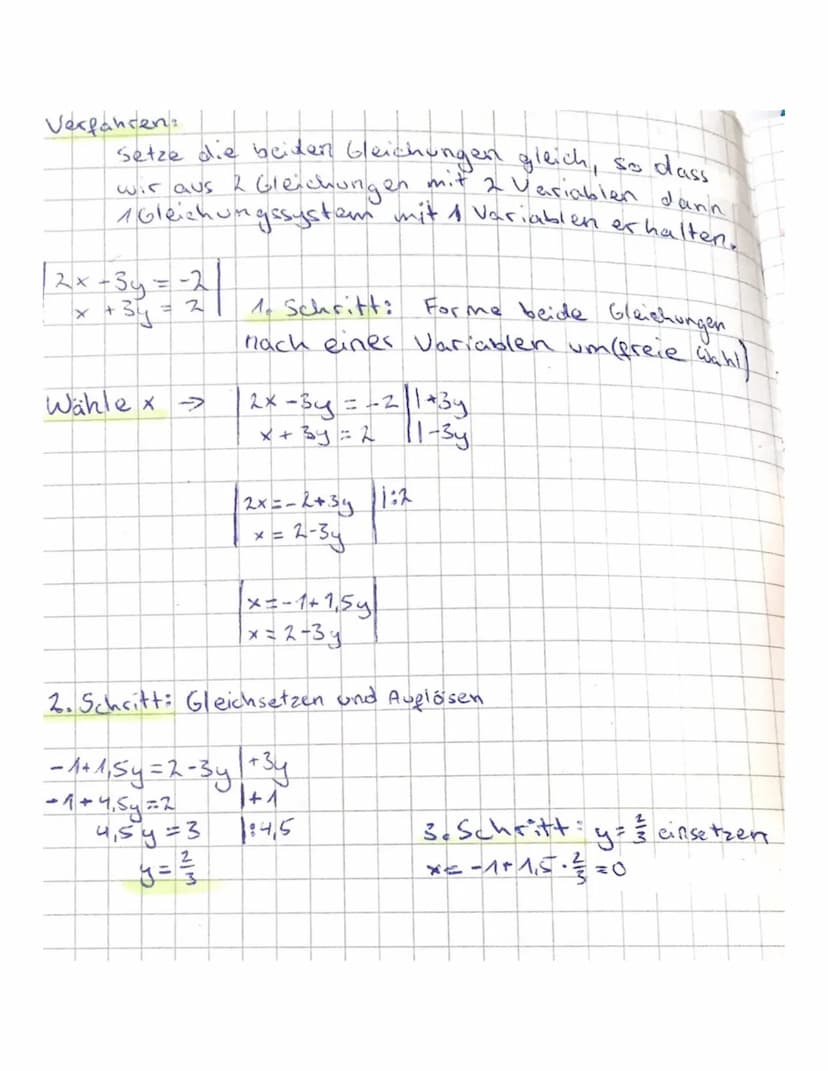 Verfahren:
Setze die beiden Gleichungen gleich, so dass
wir aus 2 Gleichungen mit 2 Variablen dann
1 Gleichungssystem mit 1 Variablen erhalten.
|2x - 3y = -2|
|x + 3y = 2|
1. Schritt: Forme beide Gleichungen
nach einer Variablen um (freie Wahl)
Wähle x → |2x - 3y = -2| |+3y
|x + 3y = 2| |-3y
|2x = -2 + 3y| |:2
|x = 2 - 3y|
|x = -1 + 1,5y|
|x = 2 - 3y|
2. Schritt: Gleichsetzen und Auflösen
-1 + 1,5y = 2 - 3y |+3y
-1 + 4,5y = 2 |+1
4,5y = 3 |:4,5
y = 2/3
3. Schritt: y = 2/3 einsetzen
x = -1 + 1,5 · 2/3 = 0